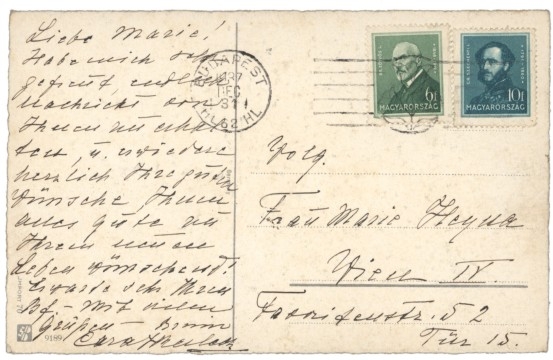 Liebe Marie!
Habe mich sehr
gefreut, endlich
Nachricht von
Ihnen zu erhal
ten, u. erwiedere
herzlich Ihre guten
Wünsche Ihnen
alles gute zu
Ihrem neuen
Leben wünschend!
Erwarte sehr Ihren
Bf. - Mit vielen
Grüßen -
BUDAPEST
937
DEC
31
62
6f
MAGYARORSZÁG
10f
MAGYARORSZÁG
Wolg.
Frau Marie Heyna
Wien IV.
Favoritenstr. 52
Tür 15.
9189